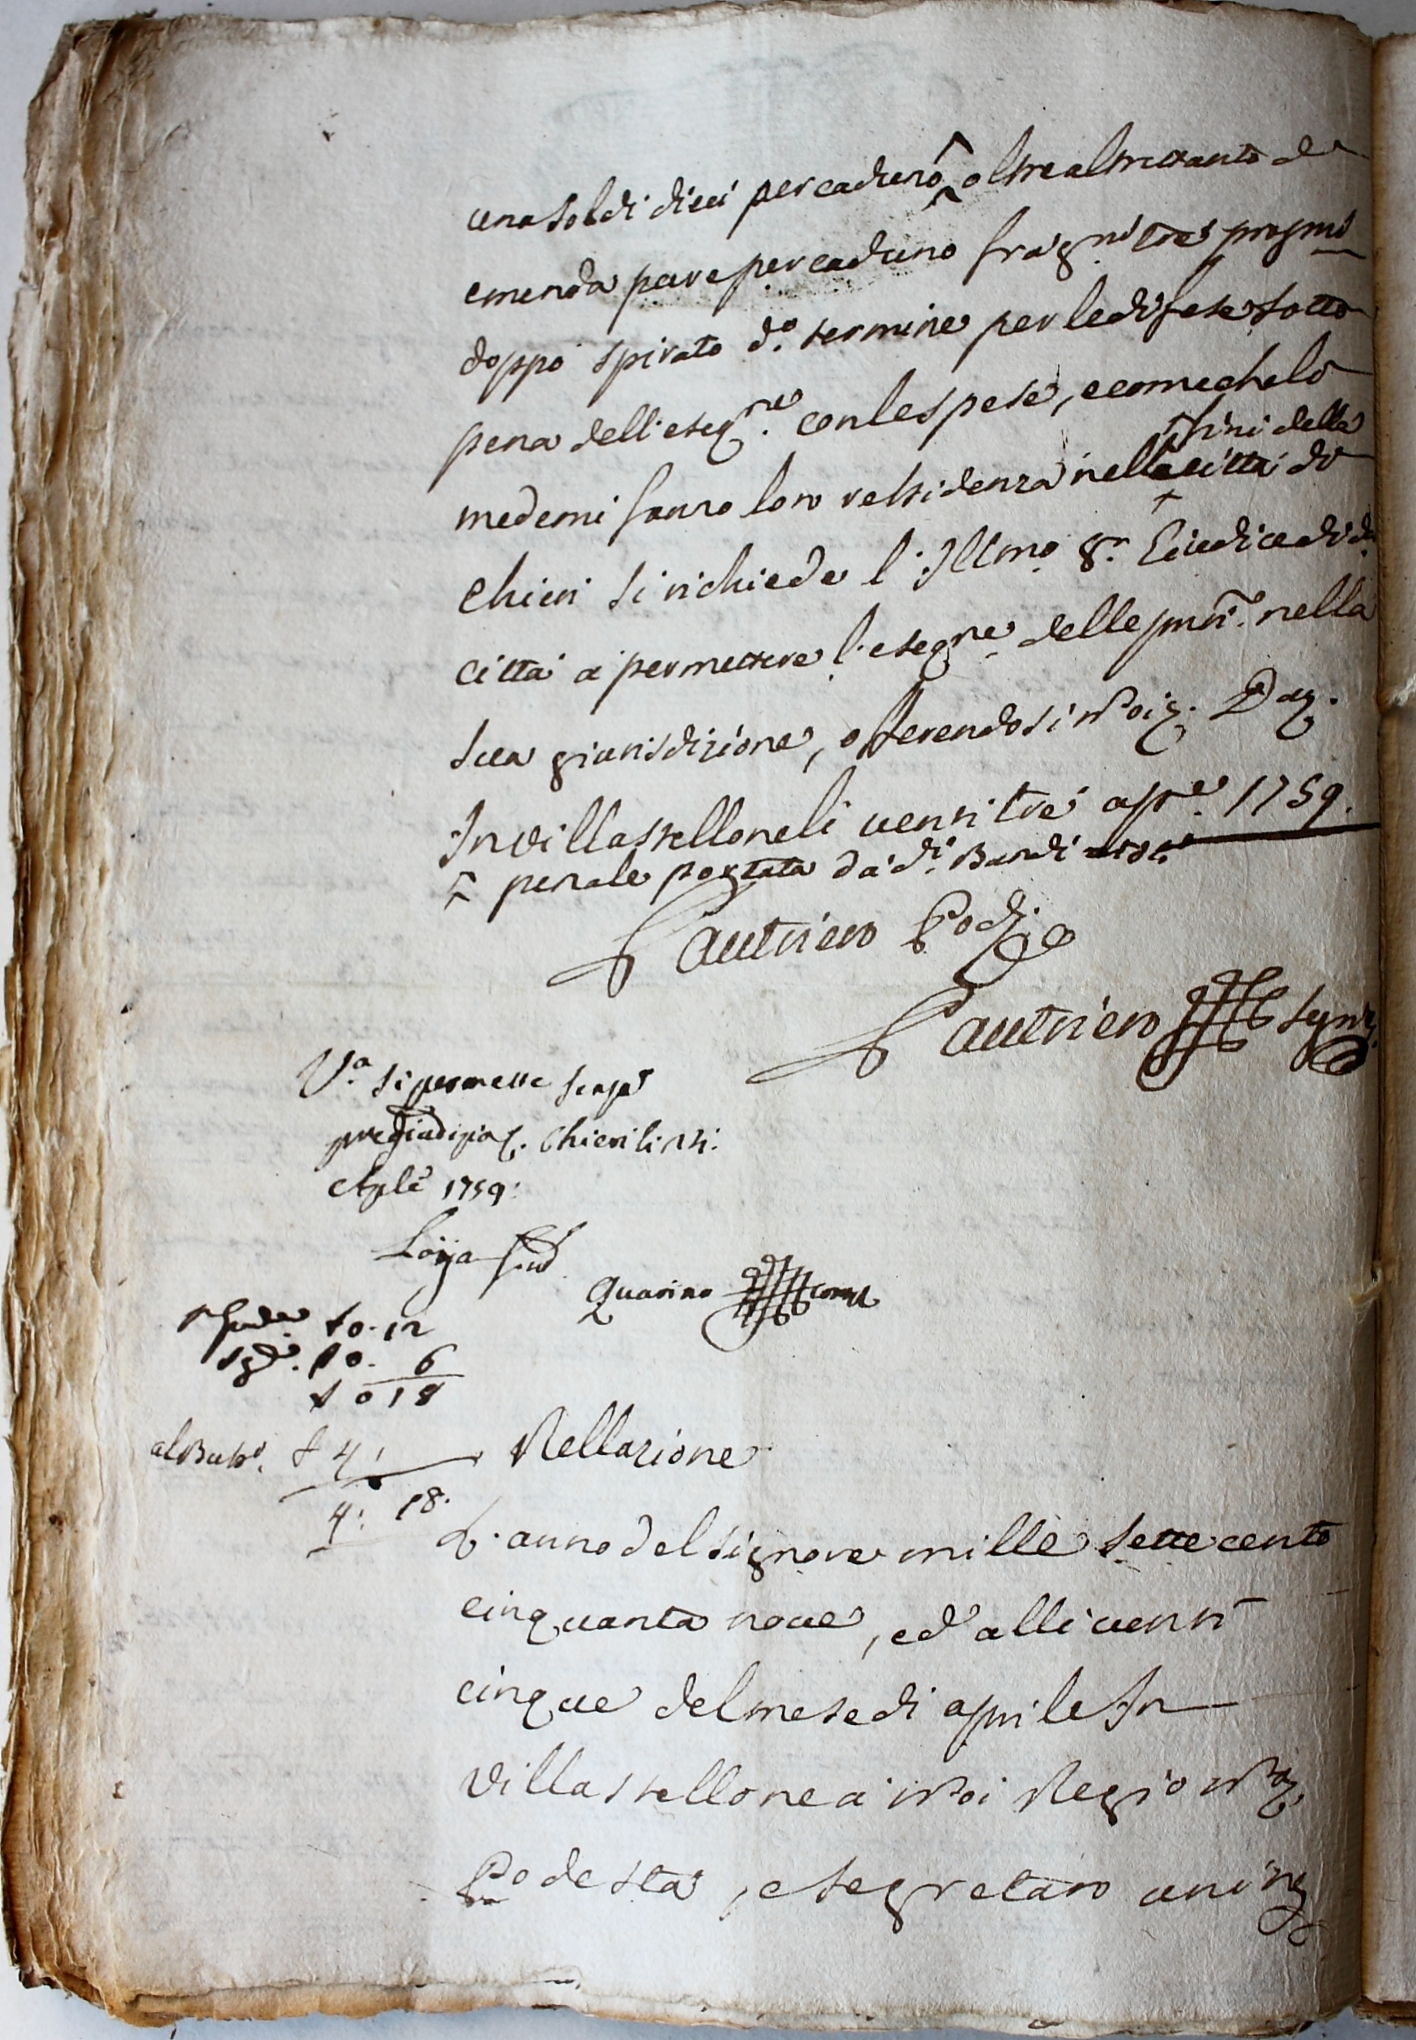 una soldi dieci per caduno ^ oltre altrettanto di
emenda pure per caduno fra g.ni trè prossmi
doppo spirato d.º termine per le difese sotto
pena dell'eseq.ne con le spese, e come che lo
fini della
medemi fanno loro ressidenza nella città di
Chieri si richiede l'Ill.mo S.r Giudice di d.a
città a permettere l'eseq.ne delle pnti nella
sua giurisdizione, offerendosi Noi
In villastellone li venti tré ap.le 1759.
^ penale portata da d.i Bandi
Gautriero Pod.
Gautriero Segr.
V.a si permette senza
pregiudizio Chieri li
Aple 1759:
Quarino
0. 12
0. 6
0 18
4:
4: 18.
Rellazione
L'anno del signore mille sette cento
cinquanta nove, ed alli venti
cinque del mese di aprile In
villastellone a' Noi Regio
Podestà, e segretaro